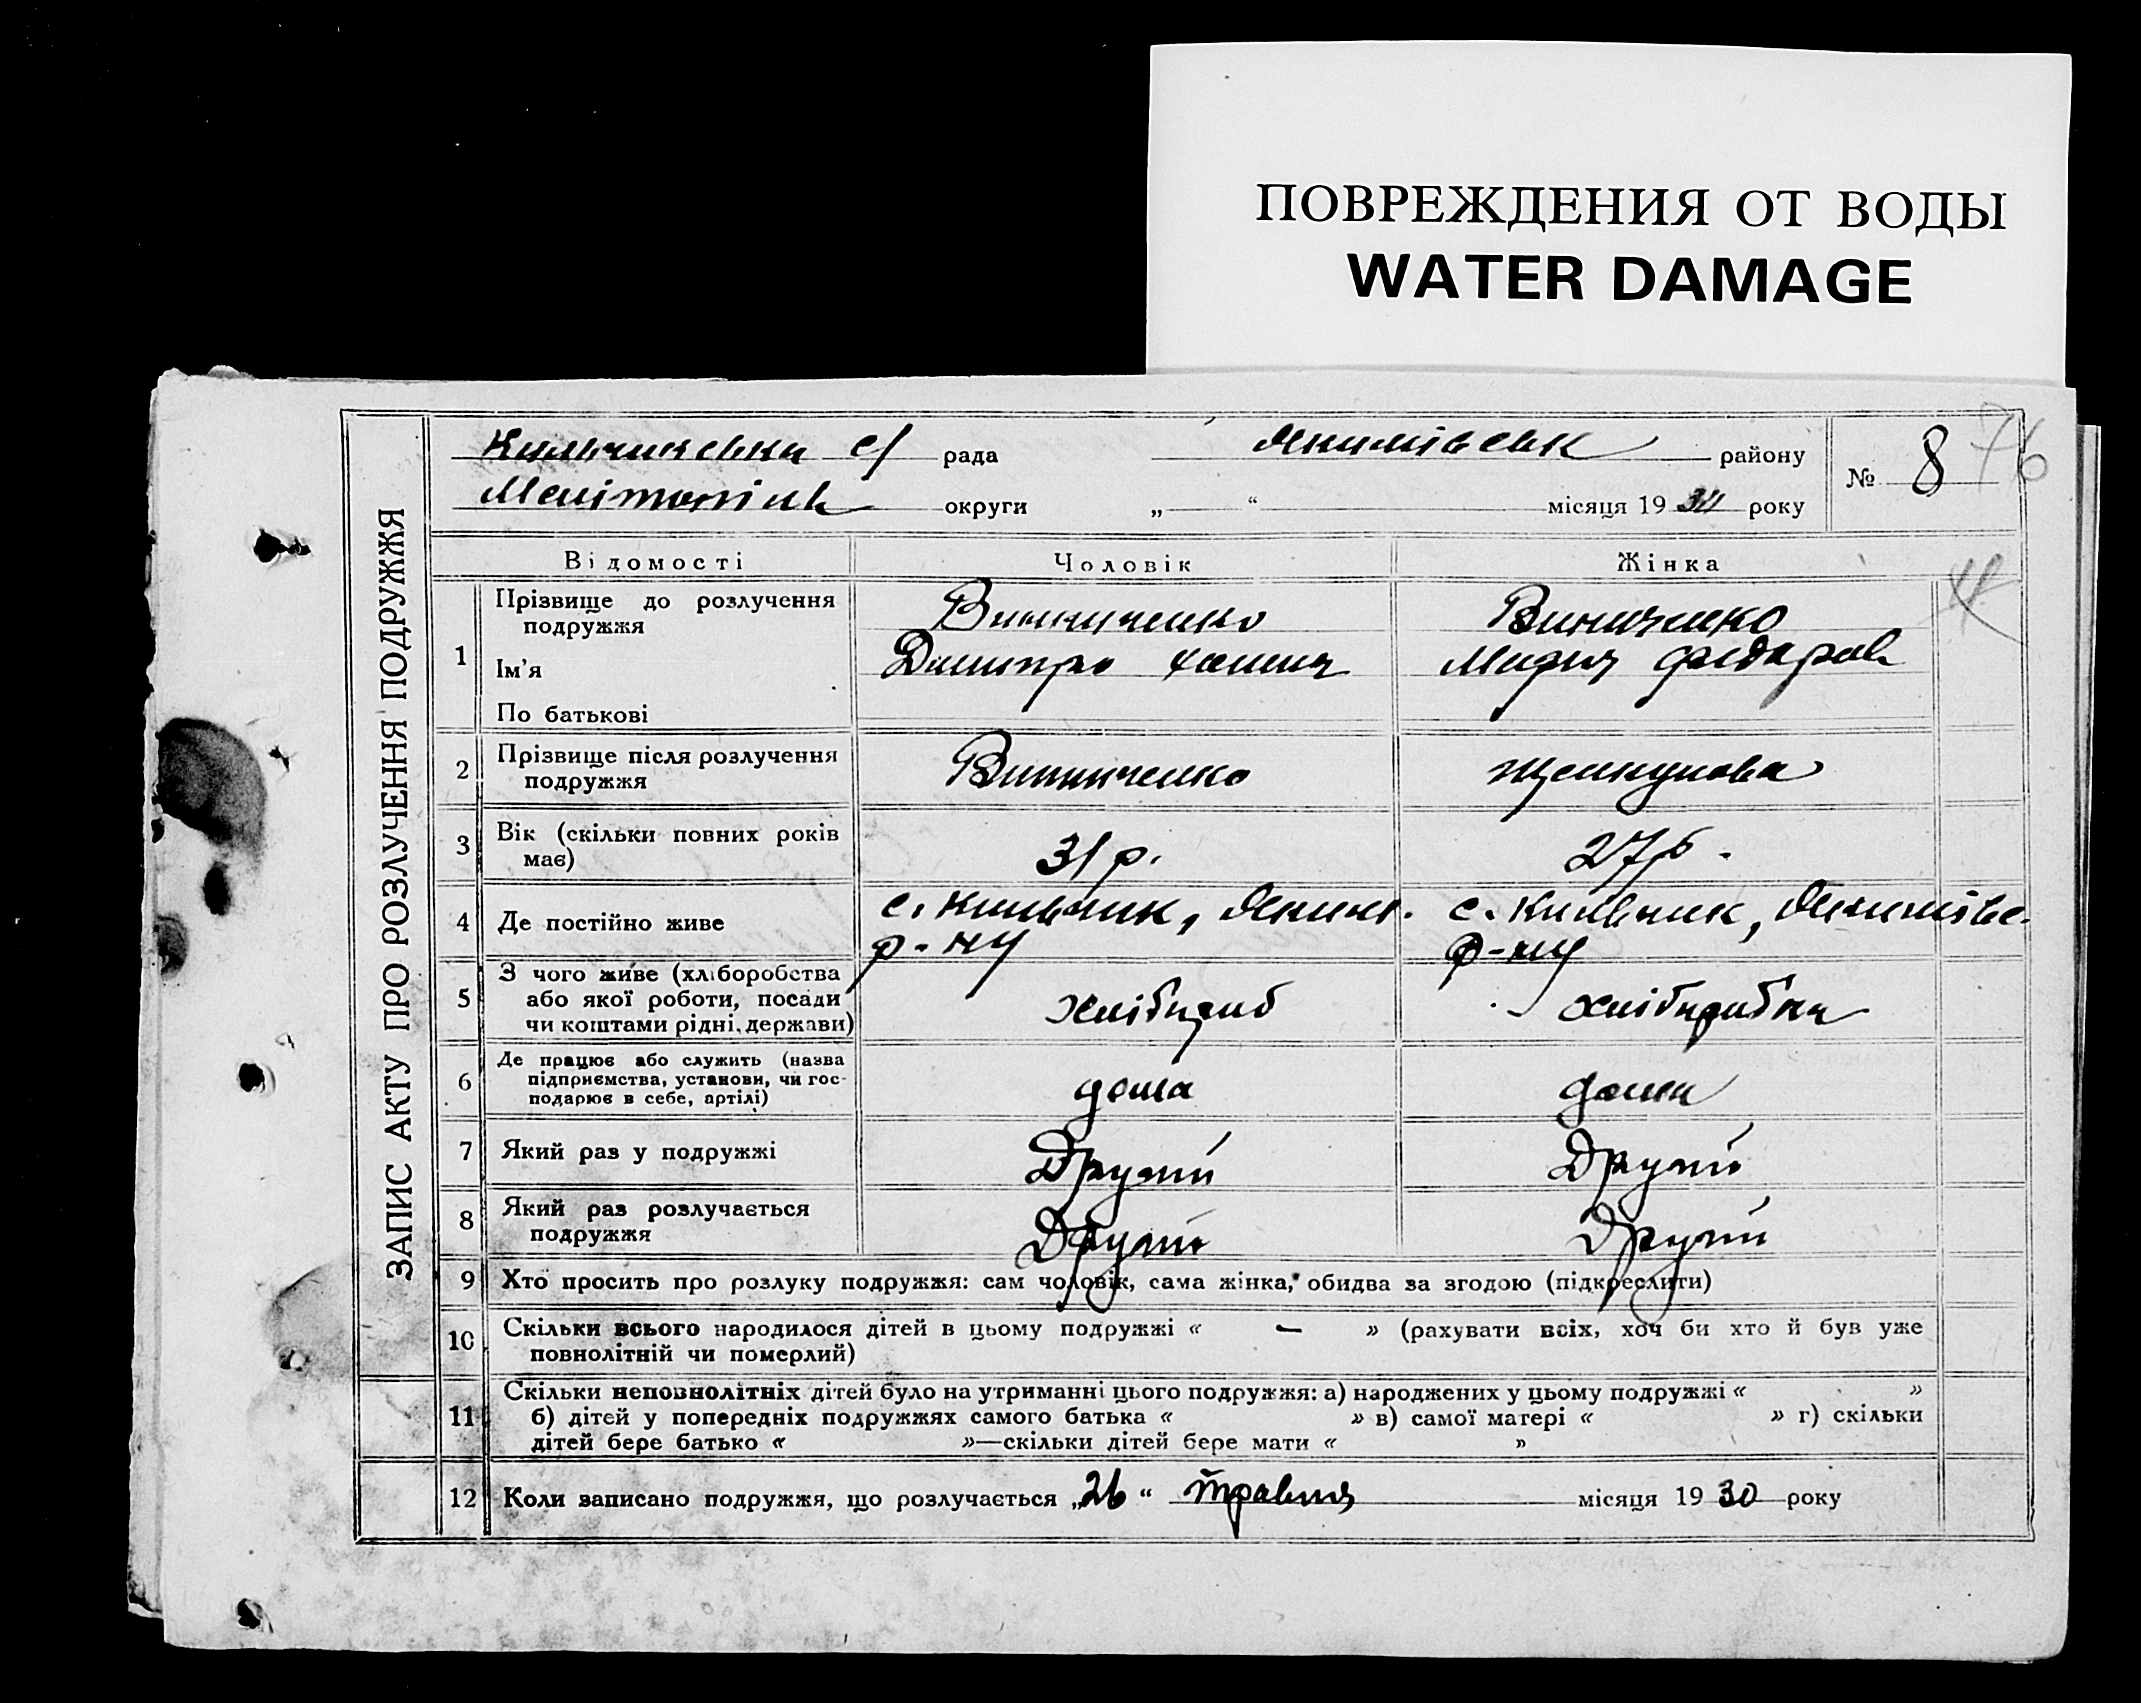 ПОВРЕЖДЕНИЯ ОТ ВОДЫ
WATER DAMAGE
ЗАПИС АКТУ ПРО РОЗЛУЧЕННЯ ПОДРУЖЖЯ
с/ рада Якимівськ району
округи „ “ місяця 19 року
№ 8 76
Відомості Чоловік Жінка
1 Прізвище до розлучення подружжя Винниченко Виниченко
Ім'я Дмитро Мария Федоров
По батькові
2 Прізвище після розлучення
подружжя
Винниченко
3 Вік (скільки повних років
має)
31 р. 27 р.
4 Де постійно живе
с. Кильчик, Яким. р-ну
с. Кильчик, Якимівс. р-ну
5 З чого живе (хліборобства
або якої роботи, посади
чи коштами рідні, держави)
хлібороб хліборобка
6 Де працює або служить (назва
підприємства, установи, чи гос-
подарює в себе, артілі)
дома дома
7 Який раз у подружжі Другий Другий
8 Який раз розлучається
подружжя
Другий Другий
9 Хто просить про розлуку подружжя: сам чоловік, сама жінка, обидва за згодою (підкреслити)
10 Скільки всього народилося дітей в цьому подружжі « — » (рахувати всіх, хоч би хто й був уже
повнолітній чи померлий)
11 Скільки неповнолітніх дітей було на утриманні цього подружжя: а) народжених у цьому подружжі « »
б) дітей у попередніх подружжях самого батька « » в) самої матері « » г) скільки
дітей бере батько « »—скільки дітей бере мати « »
12 Коли записано подружжя, що розлучається „26“ травня місяця 1930 року